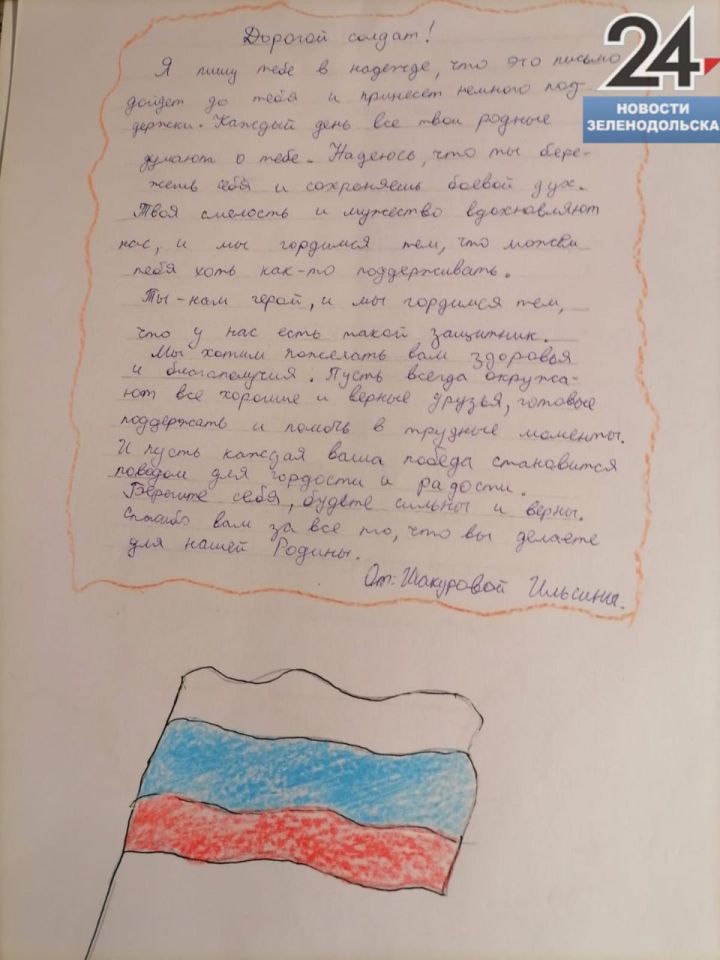 Дорогой солдат!
Я пишу тебе в надежде, что это письмо
дойдет до тебя и принесет немного под-
держки. Каждый день все твои родные
думают о тебе. Надеюсь, что ты бере-
жешь себя и сохраняешь боевой дух.
Твоя смелость и мужество вдохновляют
нас, и мы гордимся тем, что можем
тебя хоть как-то поддерживать.
Ты - нам герой, и мы гордимся тем,
что у нас есть такой защитник.
Мы хотим пожелать вам здоровья
и благополучия. Пусть всегда окружа-
ют все хорошие и верные друзья, готовые
поддержать и помочь в трудные моменты.
И пусть каждая ваша победа становится
поводом для гордости и радости.
Берегите себя, будьте сильны и верны.
Спасибо вам за все то, что вы делаете
для нашей Родины.
От: Шакуровой Ильсины.
24
НОВОСТИ
ЗЕЛЕНОДОЛЬСКА